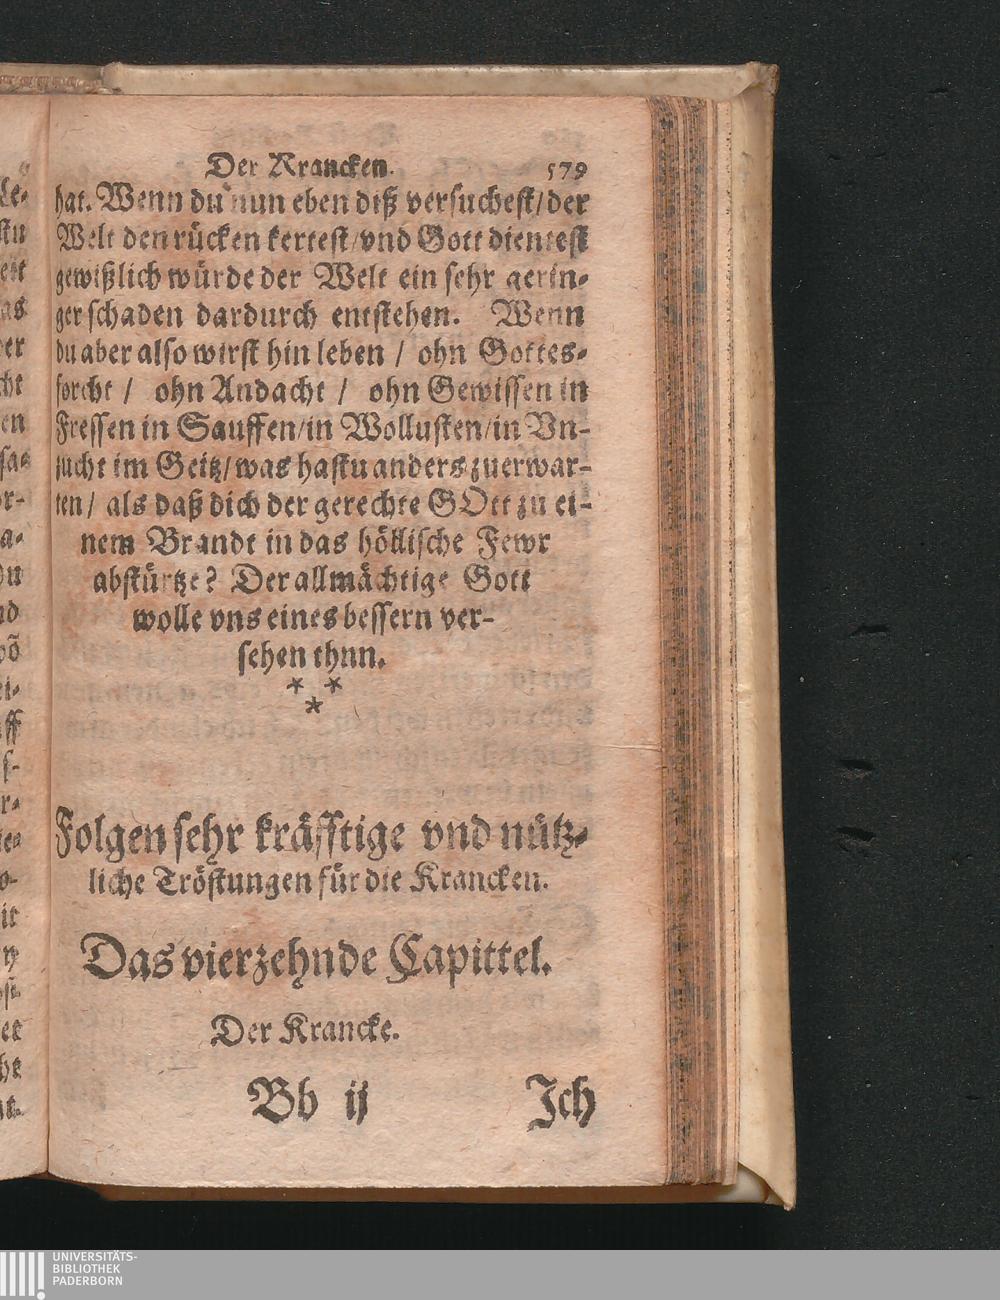 Der Krancken. 579
hat. Wenn du nun eben diß versuchest/ der
Welt den rücken kertest/ vnd Gott dientest
gewißlich würde der Welt ein sehr gerin-
ger schaden dardurch entstehen. Wenn
du aber also wirst hin leben / ohn Gottes-
forcht / ohn Andacht / ohn Gewissen in
Fressen in Sauffen/ in Wollusten/ in Vn-
zucht im Geitz/ was hastu anders zuerwar-
ten/ als daß dich der gerechte GOtt zu ei-
nem Brandt in das höllische Fewr
abstürtze? Der allmächtige Gott
wolle vns eines bessern ver-
sehen thun.
* *
*
Folgen sehr kräfftige vnd nütz-
liche Tröstungen für die Krancken.
Das vierzehnde Capittel.
Der Krancke.
Bb ij Ich
UNIVERSITÄTS-
BIBLIOTHEK
PADERBORN